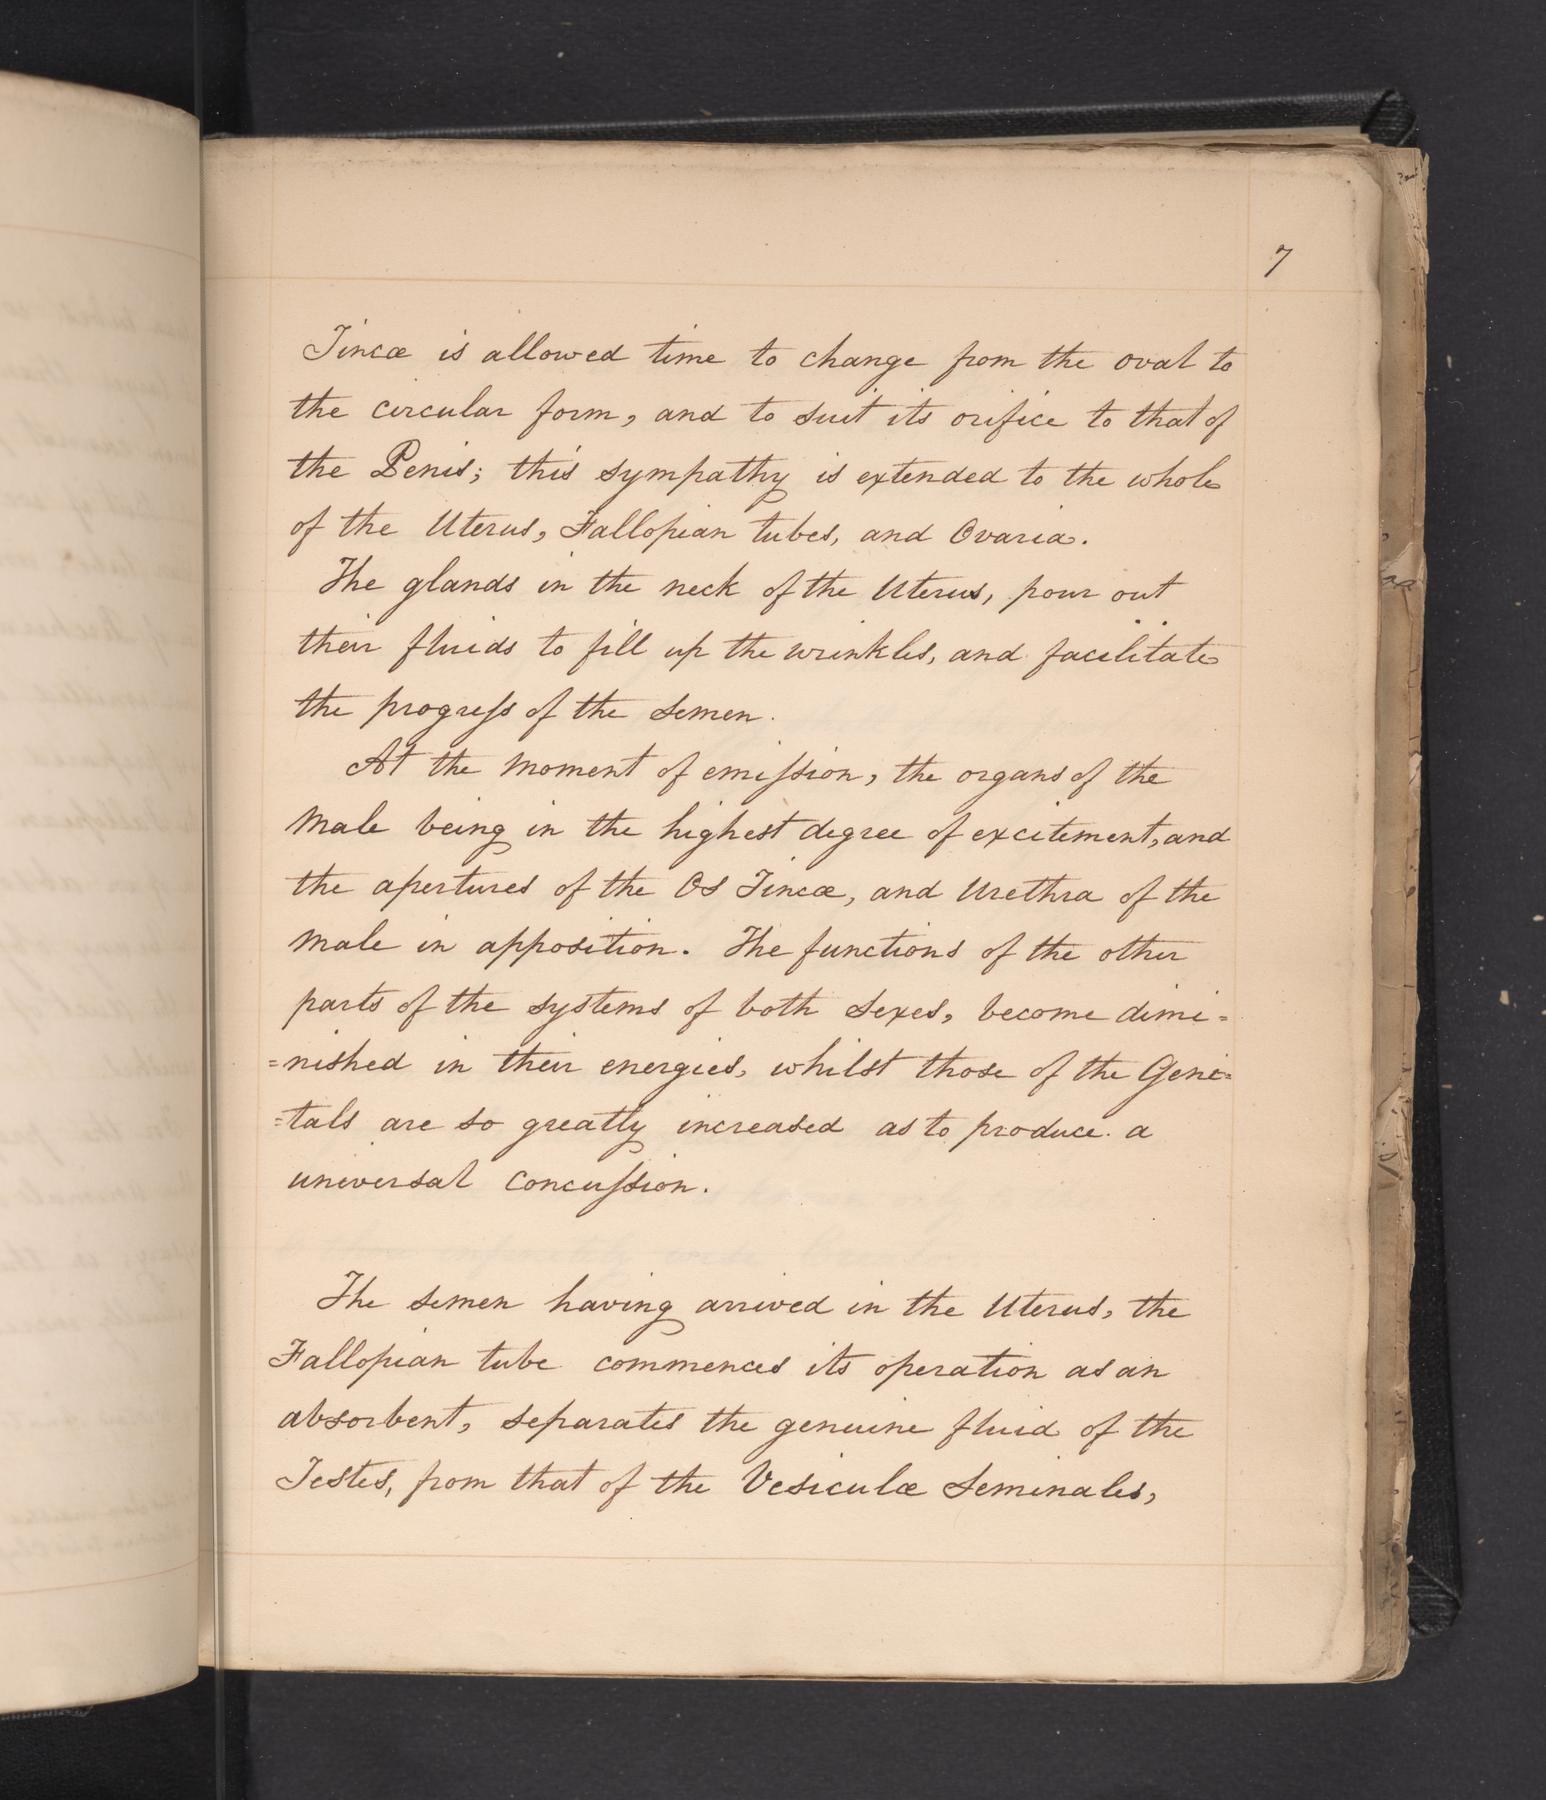 7
Tincæ is allowed time to change from the oval to
the circular form, and to suit its orifice to that of
the Penis; this sympathy is extended to the whole
of the Uterus, Fallopian tubes, and Ovaria.
The glands in the neck of the Uterus, pour out
their fluids to fill up the wrinkles, and facilitate
the progreſs of the semen.
At the moment of emiſsion, the organs of the
Male being in the highest degree of excitement, and
the apertures of the Os Tincæ, and Urethra of the
Male in apposition. The functions of the other
parts of the systems of both sexes, become dimi=
=nished in their energies, whilst those of the Geni=
=tals are so greatly increased as to produce a
universal concuſsion.
The semen having arrived in the Uterus, the
Fallopian tube commences its operation as an
absorbent, separates the genuine fluid of the
Testes, from that of the Vesiculæ Seminales,